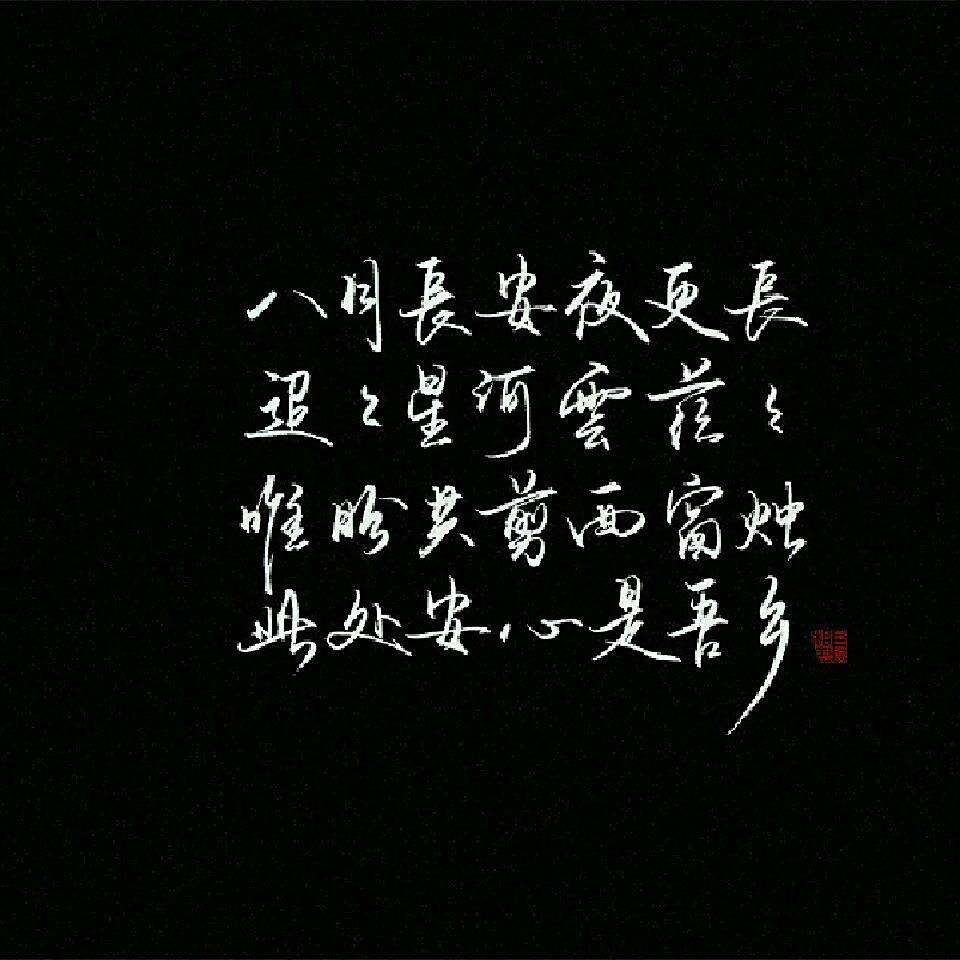 八月長安夜更長
迢々星河雲蒼々
唯盼共剪西窗烛
此处安心是吾乡